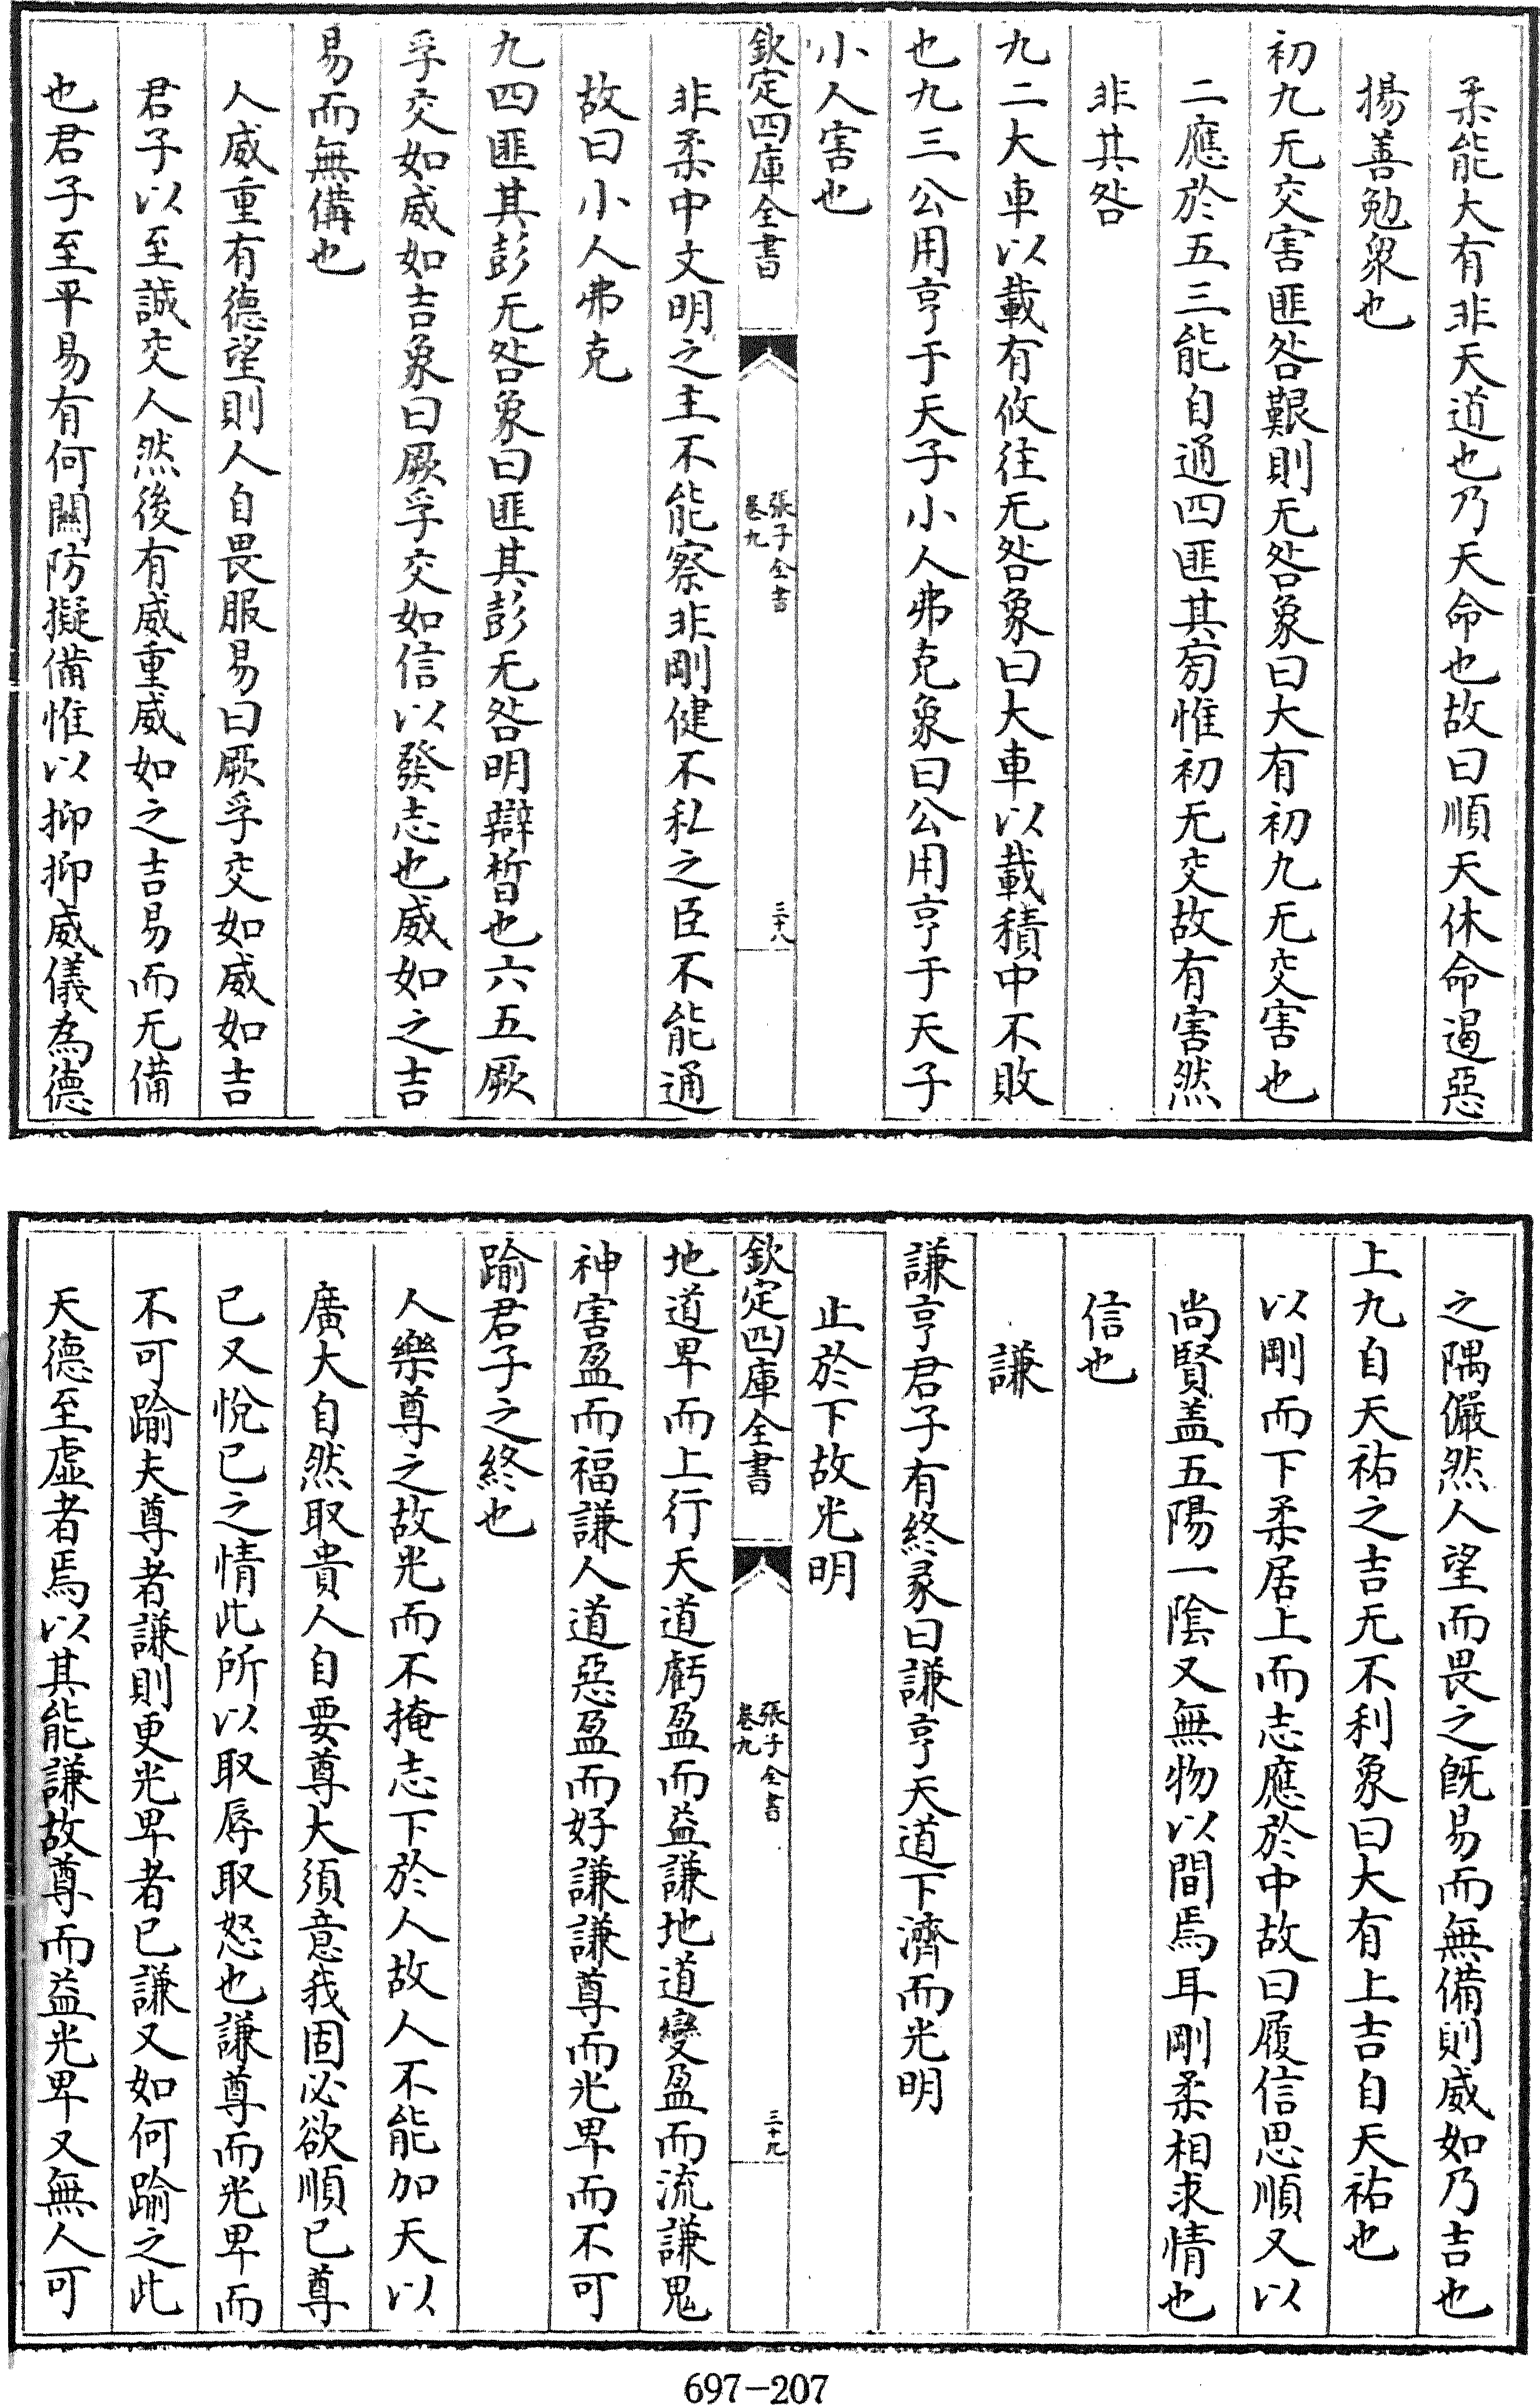 柔能大有非天道也乃天命也故曰順天休命遏惡
揚善勉衆也
初九无交害匪咎艱則无咎象曰大有初九无交害也
二應於五三能自通四匪其旁惟初无交故有害然
非其咎
九二大車以載有攸往无咎象曰大車以載積中不敗
也九三公用亨于天子小人弗克象曰公用亨于天子
小人害也
欽定四庫全書
張子全書
卷九
三十八
非柔中文明之主不能察非剛健不私之臣不能通
故曰小人弗克
九四匪其彭无咎象曰匪其彭无咎明辯晢也六五厥
孚交如威如吉象曰厥孚交如信以發志也威如之吉
易而無備也
人威重有德望則人自畏服易曰厥孚交如威如吉
君子以至誠交人然後有威重威如之吉易而无備
也君子至平易有何關防擬備惟以抑抑威儀為德
之隅儼然人望而畏之既易而無備則威如乃吉也
上九自天祐之吉无不利象曰大有上吉自天祐也
以剛而下柔居上而志應於中故曰履信思順又以
尚賢盖五陽一陰又無物以間焉耳剛柔相求情也
信也
謙
謙亨君子有終彖曰謙亨天道下濟而光明
止於下故光明
欽定四庫全書
張子全書
卷九
三十九
地道卑而上行天道虧盈而益謙地道變盈而流謙鬼
神害盈而福謙人道惡盈而好謙謙尊而光卑而不可
踰君子之終也
人樂尊之故光而不掩志下於人故人不能加天以
廣大自然取貴人自要尊大須意我固必欲順已尊
已又悅已之情此所以取辱取怒也謙尊而光卑而
不可踰夫尊者謙則更光卑者已謙又如何踰之此
天德至虛者焉以其能謙故尊而益光卑又無人可
697-207